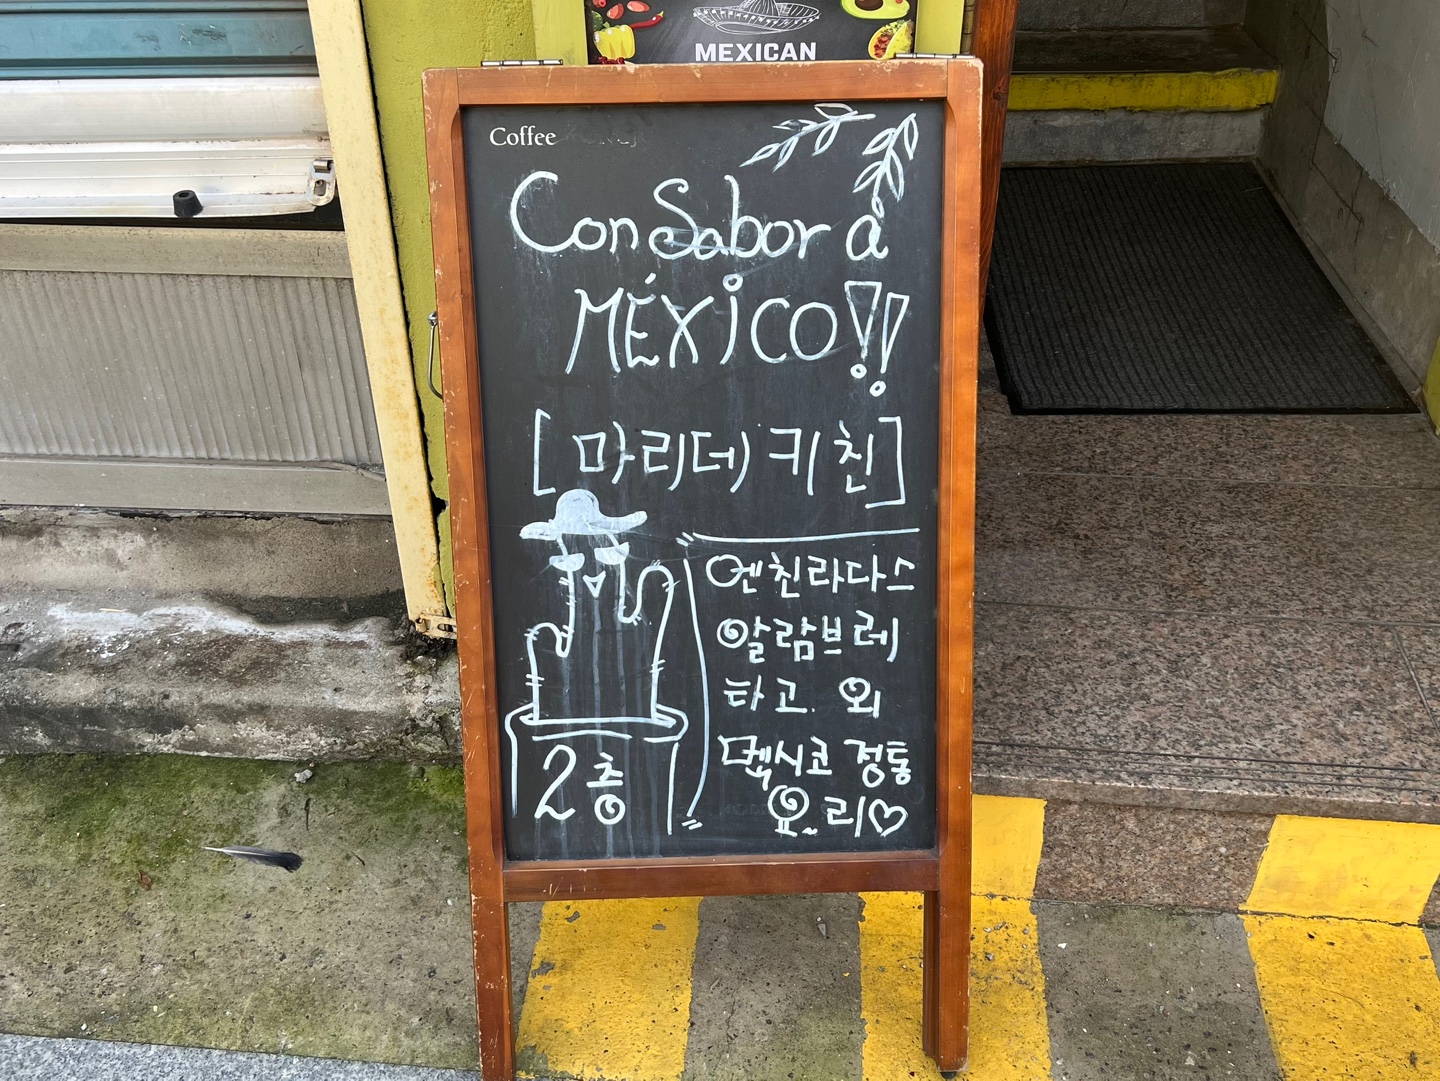 MEXICAN
Coffee
Con Sabor a
MÉXiCO!!
[마리데 키친]
엔친라다스
알람브레
타고. 외
멕시코 정통
요~리♡
2층